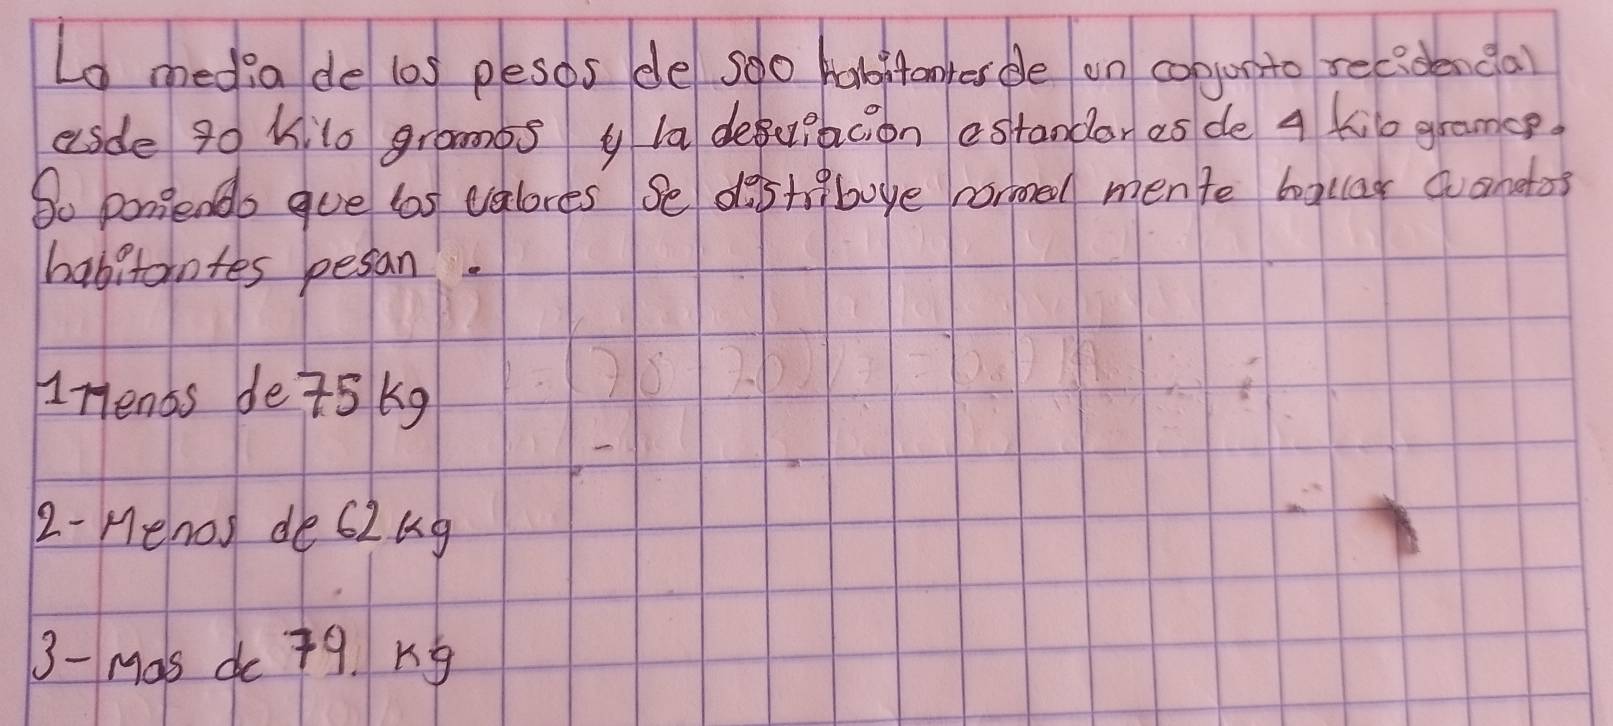 La media de los pesos de 500 habitantes de un conjunto recidencial
esde 70 kilo gramos y la desviacion estandar es de 4 kilo gramos.
So poniendo que los valores Se distribuye normal mente hallar Cuandtos
habitantes pesan .
1 Menos de 75 kg
2- Menos de 62 kg
3- Mas de 79. Kg